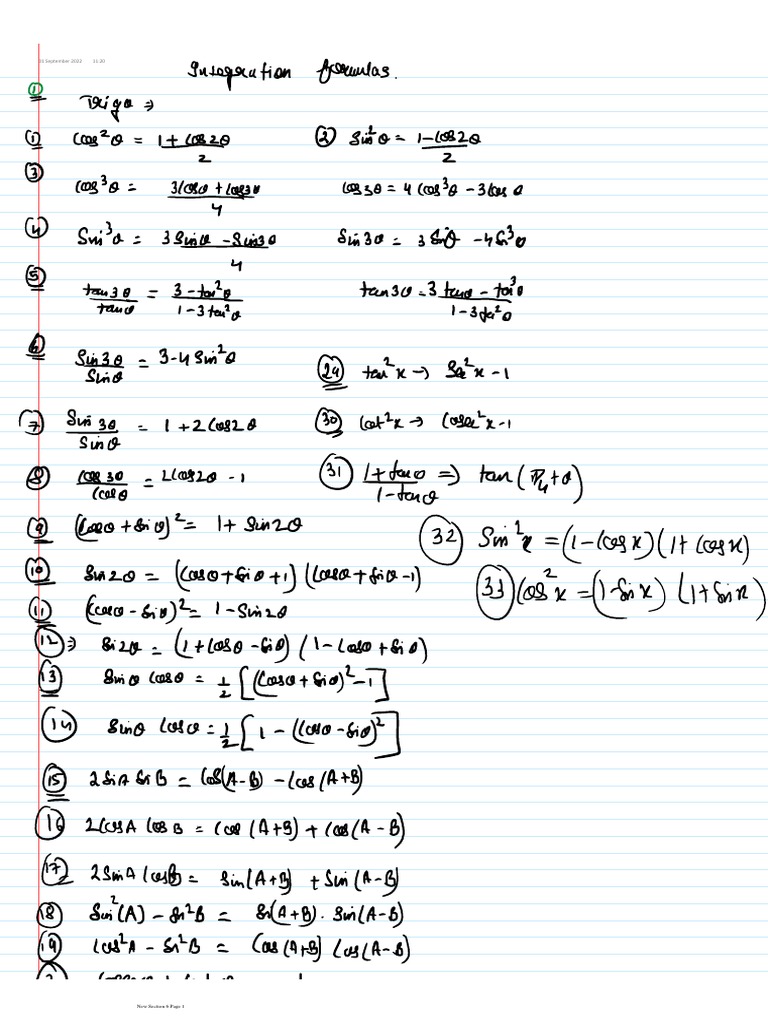 September 2022 11:20
Integration formulas.
① Trigo ⇒
① cos²θ = (1 + cos2θ)/2 ② sin²θ = (1 - cos2θ)/2
③ cos³θ = (3cosθ + cos3θ)/4 cos3θ = 4cos³θ - 3cosθ
④ Sin³θ = (3Sinθ - Sin3θ)/4 Sin3θ = 3Sinθ - 4Sin³θ
⑤ tan3θ/tanθ = (3 - tan²θ)/(1 - 3tan²θ) tan3θ = (3tanθ - tan³θ)/(1 - 3tan²θ)
⑥ Sin3θ/Sinθ = 3 - 4Sin²θ ㉙ tan²x → Sec²x - 1
⑦ Sin3θ/Sinθ = 1 + 2cos2θ ㉚ Cot²x → Cosec²x - 1
⑧ cos3θ/cosθ = 2cos2θ - 1 ㉛ (1 + tanθ)/(1 - tanθ) ⇒ tan(π/4 + θ)
⑨ (cosθ + sinθ)² = 1 + Sin2θ
㉜ Sin²x = (1 - cosx)(1 + cosx)
⑩ Sin2θ = (cosθ + sinθ + 1)(cosθ + sinθ - 1)
㉝ cos²x = (1 - sinx)(1 + sinx)
⑪ (cosθ - sinθ)² = 1 - Sin2θ
⑫ ⇒ Sin2θ = (1 + cosθ - sinθ)(1 - cosθ + sinθ)
⑬ Sinθ cosθ = 1/2 [(cosθ + sinθ)² - 1]
⑭ Sinθ cosθ = 1/2 [1 - (cosθ - sinθ)²]
⑮ 2SinA SinB = Cos(A-B) - Cos(A+B)
⑯ 2CosA CosB = Cos(A+B) + Cos(A-B)
⑰ 2SinA CosB = Sin(A+B) + Sin(A-B)
⑱ Sin²(A) - Sin²B = Sin(A+B) . Sin(A-B)
⑲ Cos²A - Sin²B = Cos(A+B) Cos(A-B)
New Section 6 Page 1